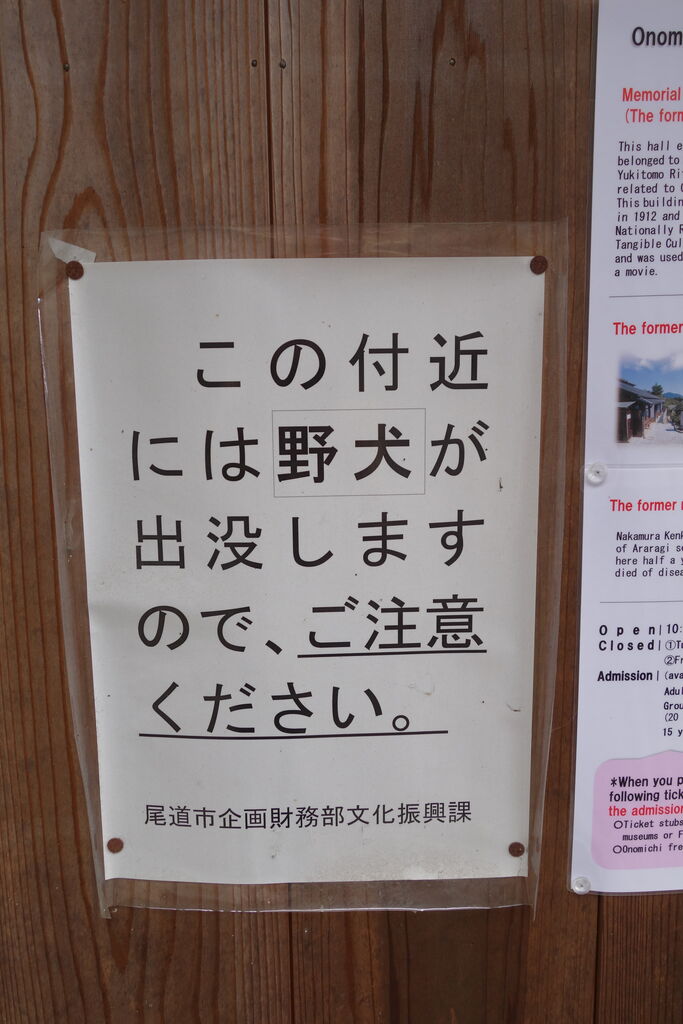 この付近
には野犬が
出没します
ので、ご注意
ください。
尾道市企画財務部文化振興課
Onom
Memorial
(The form
This hall e
belonged to
Yukitomo Ri
related to
This buildin
in 1912 and
Nationally R
Tangible Cul
and was used
a movie.
The former
The former
Nakamura Kenk
of Araragi se
here half a y
died of disea
Open 10:
Closed ①Tu
②Fr
Admission (ava
Adul
Grou
(20
15 y
*When you p
following tick
the admission
○Ticket stubs
museums or F
○Onomichi fre